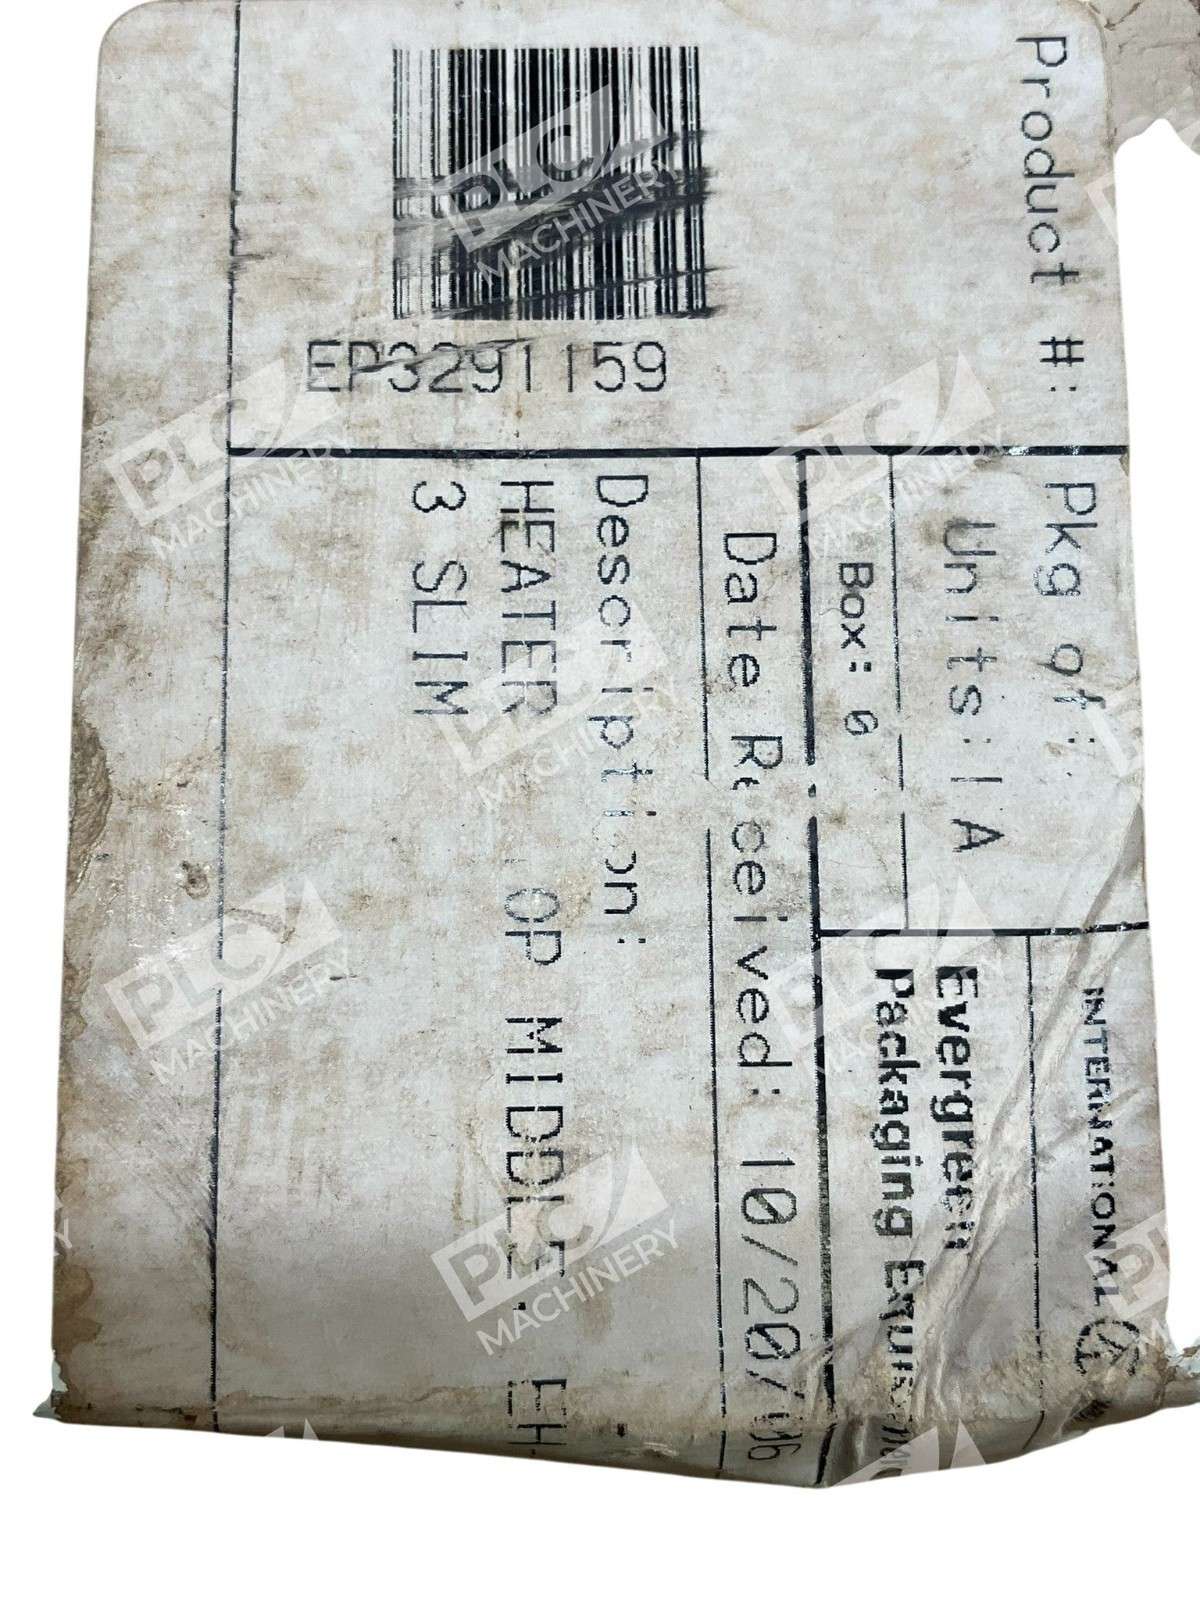 INTERNATIONAL
Evergreen
Packaging
Pkg of:
Units: 1A
Box: 0
Product #:
EP3291159
Date Received: 10/20/06
Description:
HEATER OP MIDDLE, EH
3 SLIM
PLC
MACHINERY